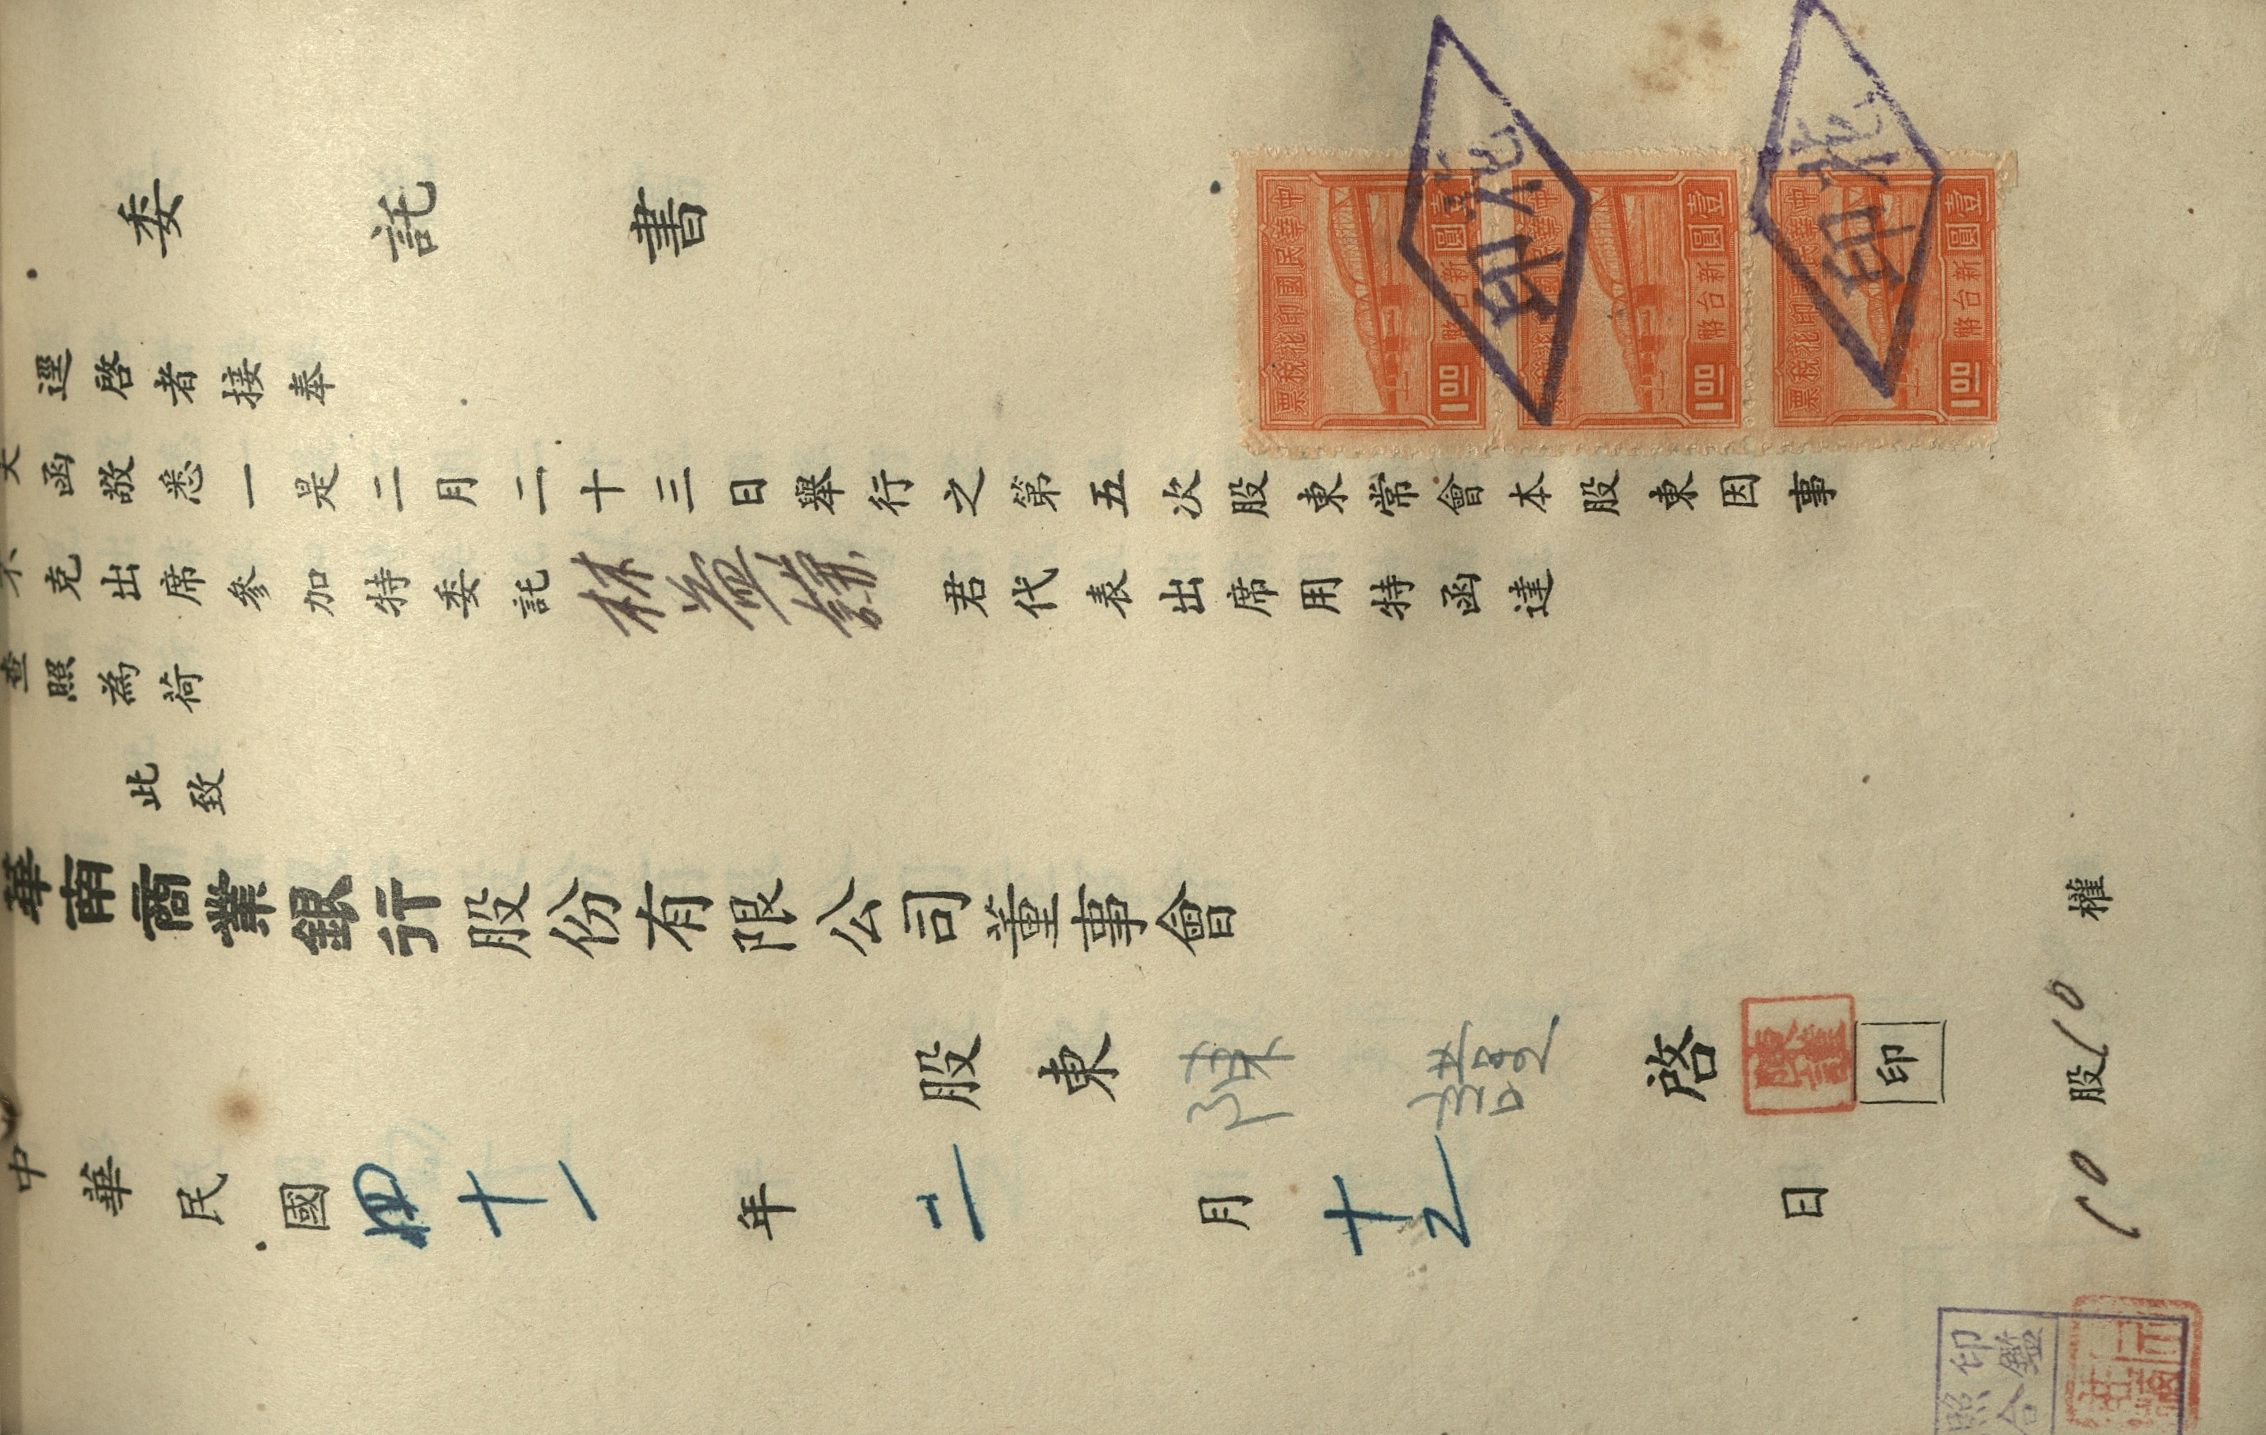 委託書
中華民國印花稅票
壹圓 新台幣 1.00
中華民國印花稅票
壹圓 新台幣 1.00
中華民國印花稅票
壹圓 新台幣 1.00
印花
印花
逕啓者接奉
大函敬悉一是二月二十三日舉行之第五次股東常會本股東因事
不克出席參加特委託林益謙君代表出席用特函達
查照為荷
此致
華南商業銀行股份有限公司董事會
股東 陳 啓 印
中華民國四十一年二月十五日
10股10權
印鑑
照合